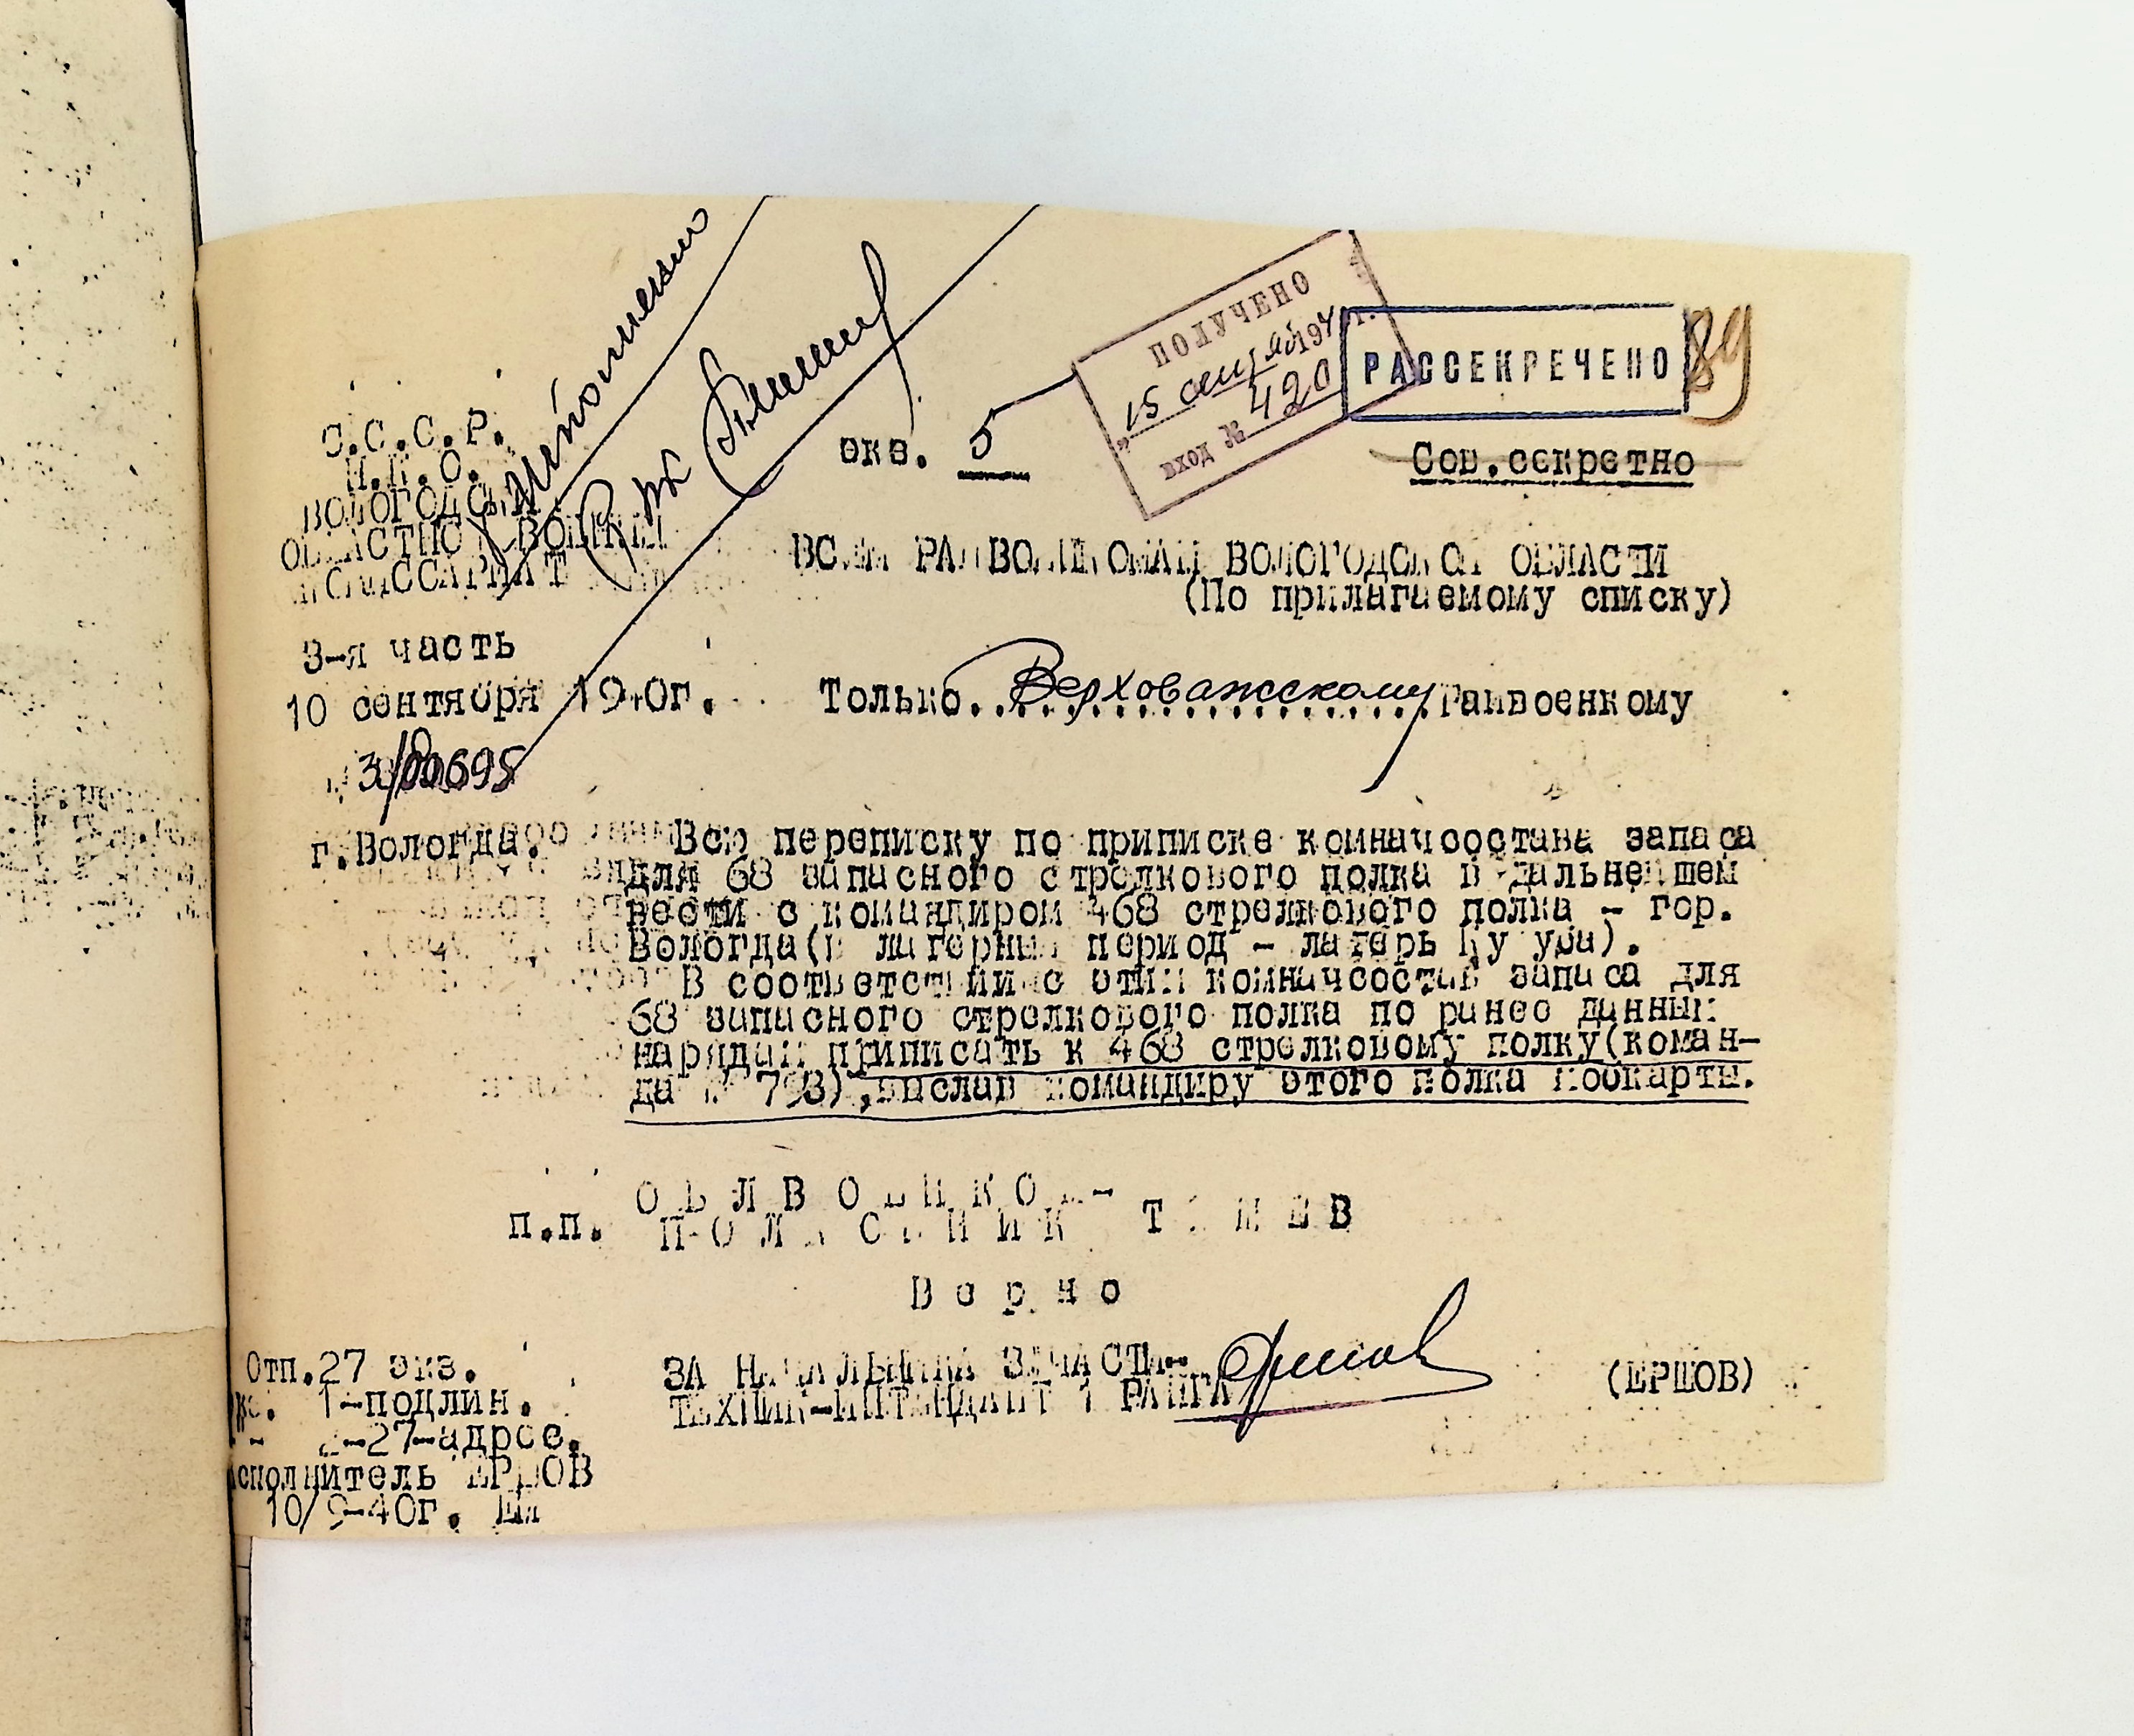 ПОЛУЧЕНО
„15 сентября 1940 г.
ВХОД № 420
РАССЕКРЕЧЕНО
89
экз. 5
Сов.секретно
С.С.С.Р.
Н.К.О.
ВОЛОГОДСКИЙ
ОБЛАСТНОЙ ВОЕННЫЙ
КОМИССАРИАТ
3-я часть
10 сентября 1940г.
3/00695
г.Вологда.
ВСЕМ РАЙВОЕНКОМАМ ВОЛОГОДСКОЙ ОБЛАСТИ
(По прилагаемому списку)
Только Верховажскому Райвоенкому
Всю переписку по приписке комначсостава запаса
для 68 запасного стрелкового полка в дальнейшем
вести с командиром 468 стрелкового полка - гор.
Вологда(в лагерный период - лагерь).
В соответствии с этим комначсостав запаса для
68 запасного стрелкового полка по ранее данным
нарядам приписать к 468 стрелковому полку(коман-
да № 793),выслав командиру этого полка мобкарты.
п.п. ОБЛВОЕНКОМ-
ПОЛКОВНИК
Верно
ЗА НАЧАЛЬНИКА 3 ЧАСТИ-
ТЕХНИК-ИНТЕНДАНТ 1 РАНГА
(ЕРШОВ)
Отп.27 экз.
экз. 1-подлин.
2-27-адрес.
исполнитель ЕРШОВ
10/9-40г.